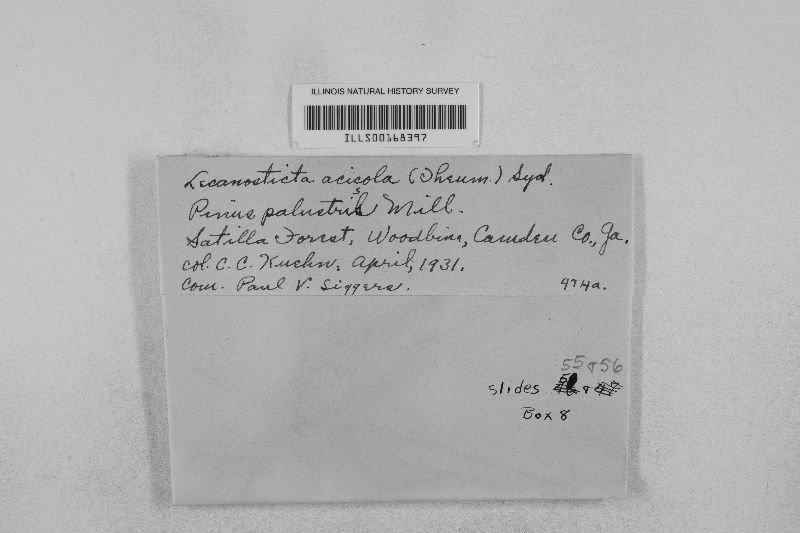 ILLINOIS NATURAL HISTORY SURVEY
ILLS00168397
Lecanosticta acicola (Thüm.) Syd.
Pinus palustris Mill.
Satilla Forest, Woodbine, Camden Co., Ga.
col. C. C. Kuehn, April, 1931.
Com. Paul V. Siggers. 474a.
55 & 56
slides &
Box 8